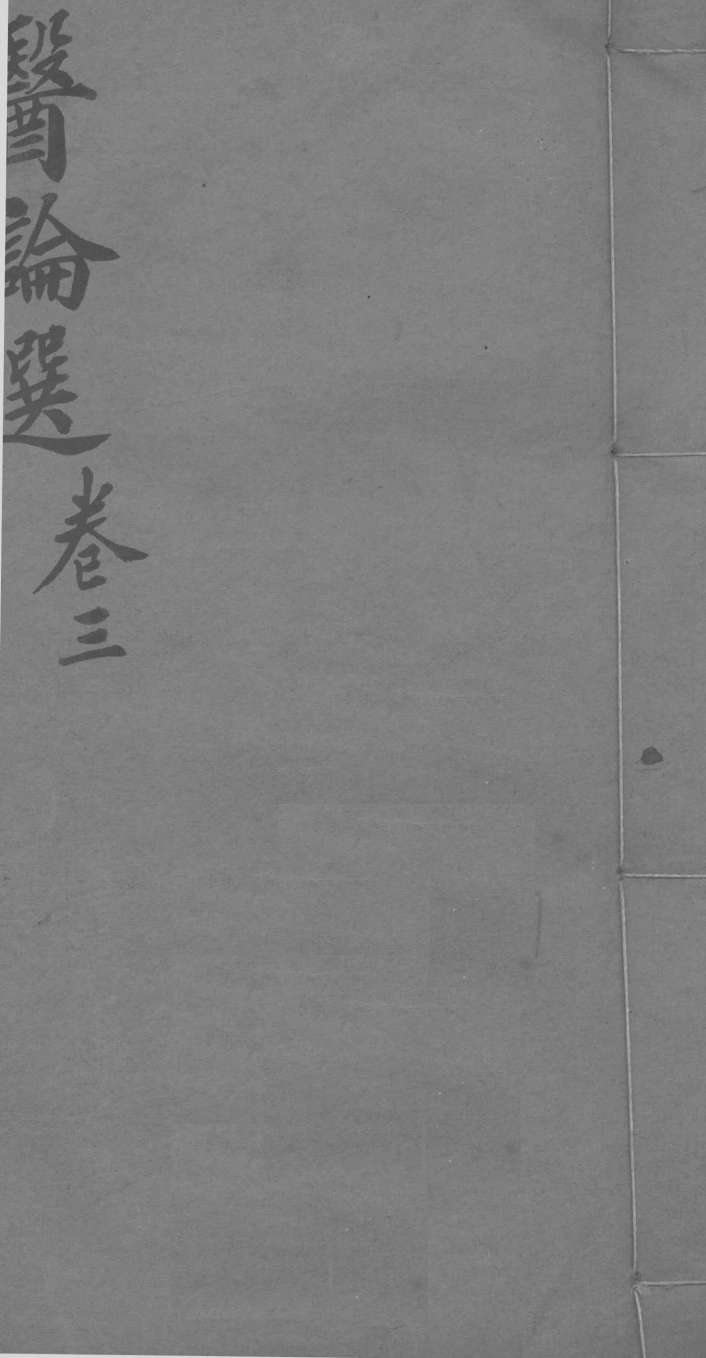 醫論選卷三